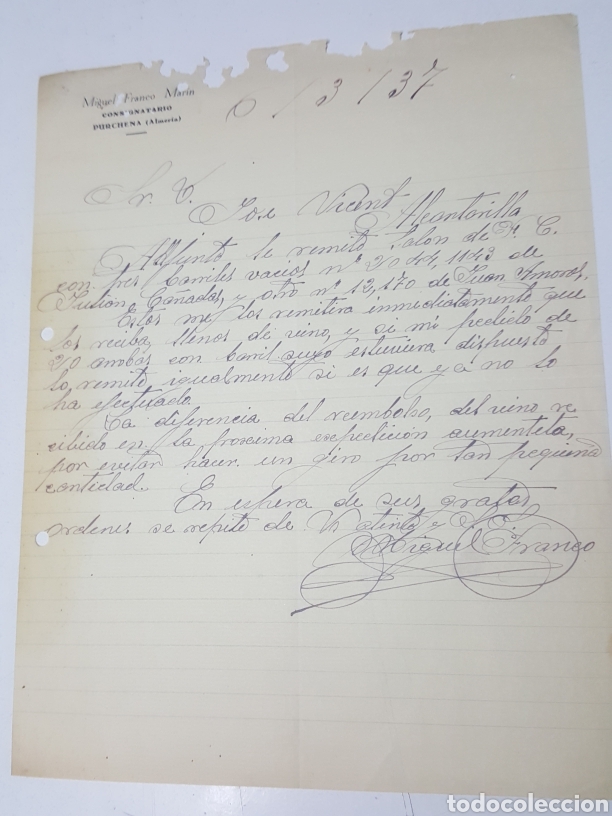 Miguel Franco Marín
CONSIGNATARIO
PURCHENA (Almería)
6/3/37
Sr. D.
José Vicent
Alcantarilla
Adjunto le remito talon de F. C.
con tres barriles vacios nº 2044, 1143 de
Julian Canadas, y otro nº 12,170 de Juan Amoros.
Estos me los remitira inmediatamente que
los reciba, llenos de vino, y si mi pedido de
20 arrobas con barril suyo estuviera dispuesto
lo remite igualmente si es que yá no lo
ha efectuado.
La diferencia del reembolso, del vino re
cibido en la proxima expedición aumentela,
por evitar hacer un giro por tan pequeña
cantidad.
En espera de sus gratas
ordenes se repite de V. atento y
Miguel Franco
todocoleccion